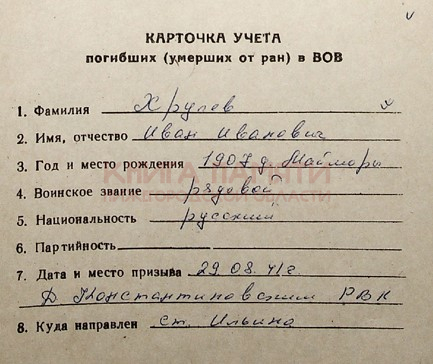 КАРТОЧКА УЧЕТА
погибших (умерших от ран) в ВОВ
1. Фамилия Хрулев
2. Имя, отчество Иван Иванович
3. Год и место рождения 1907 д. Майморы
КНИГА ПАМЯТИ
4. Воинское звание рядовой
НИЖЕГОРОДСКОЙ ОБЛАСТИ
5. Национальность русский
6. Партийность
7. Дата и место призыва 29.08.41г
Д Константиновским РВК
8. Куда направлен ст. Ильино